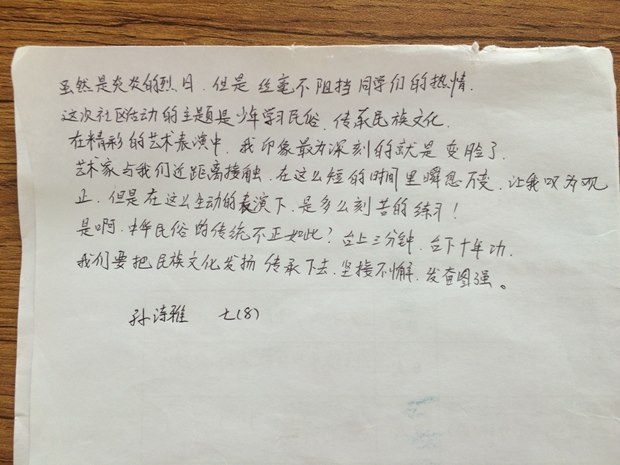 虽然是炎炎的烈日，但是丝毫不阻挡同学们的热情.
这次社区活动的主题是少年学习民俗，传承民族文化.
在精彩的艺术表演中，我印象最为深刻的就是变脸了.
艺术家与我们近距离接触，在这么短的时间里瞬息万变，让我叹为观
止，但是在这么生动的表演下，是多么刻苦的练习！
是啊，中华民俗的传统不正如此？台上三分钟，台下十年功.
我们要把民族文化发扬 传承下去，坚接不懈，发奋图强。
孙诗雅 七(8)